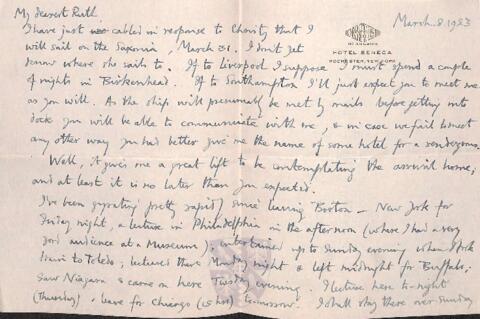 My dearest Ruth,
March. 8. 1923
I have just cabled in response to Charity that I
HOTEL SENECA
ROCHESTER, NEW YORK
will sail on the Saxonia, March 31. I don't yet
know where she sails to. If to Liverpool I suppose I must spend a couple
of nights in Birkenhead. If to Southampton I'll just expect you to meet me
as you will. As the ship will presumably be met by mails before getting into
dock you will be able to communicate with me, & in case we fail to meet
any other way you had better give me the name of some hotel for a rendezvous.
Well, it gives me a great lift to be contemplating the arrival home,
and at least it is no later than you expected.
I've been gyrating pretty rapidly since leaving Boston – New York for
Friday night, a lecture in Philadelphia in the afternoon (where I had a very
good audience at a Museum), entertained up to Sunday evening when I took
train to Toledo; lectured there Monday night & left midnight for Buffalo;
saw Niagara & came on here Tuesday evening. I lecture here to-night
(Thursday) & leave for Chicago tomorrow. I shall stay there over Sunday